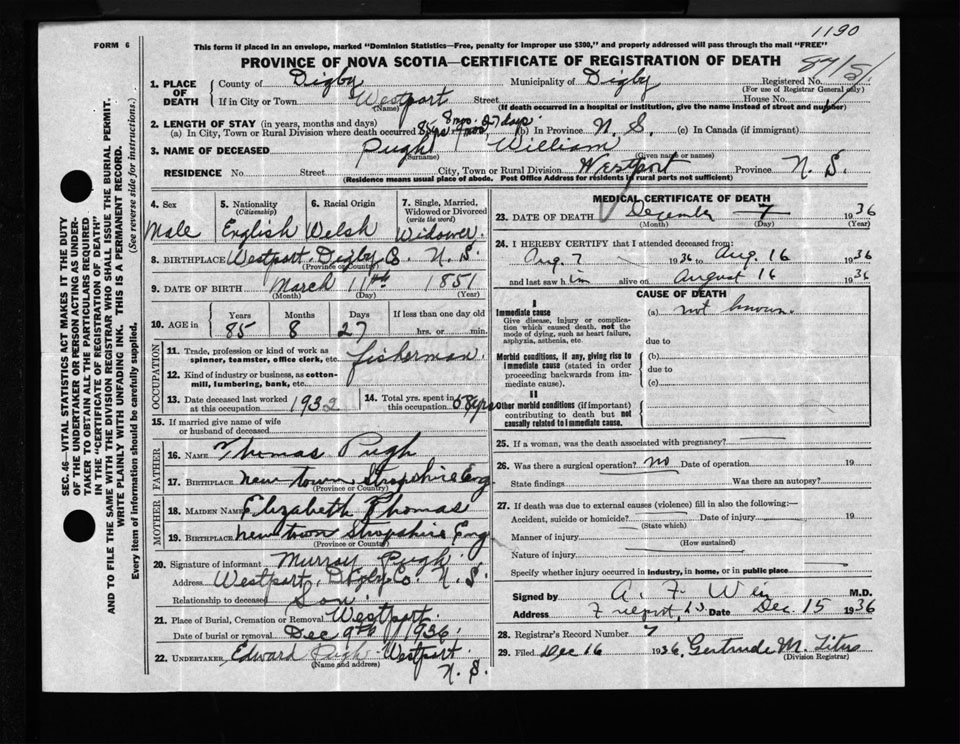 1190
FORM 6
This form if placed in an envelope, marked "Dominion Statistics—Free, penalty for improper use $300," and properly addressed will pass through the mail "FREE"
PROVINCE OF NOVA SCOTIA—CERTIFICATE OF REGISTRATION OF DEATH
1. PLACE OF DEATH County of Digby Municipality of Digby Registered No.
(For use of Registrar General only)
If in City or Town Westport Street House No.
(Name) (If death occurred in a hospital or institution, give the name instead of street and number)
2. LENGTH OF STAY (in years, months and days) 8 mos. 27 days
(a) In City, Town or Rural Division where death occurred 85 yrs (b) In Province N. S. (c) In Canada (if immigrant)
3. NAME OF DECEASED Pugh William
(Surname) (Given name or names)
RESIDENCE No Street City, Town or Rural Division Westport Province N. S.
(Residence means usual place of abode. Post Office Address for residents in rural parts not sufficient)
SEC. 46—VITAL STATISTICS ACT MAKES IT THE DUTY
OF THE UNDERTAKER OR PERSON ACTING AS UNDER-
TAKER TO OBTAIN ALL THE PARTICULARS REQUIRED
IN THE "CERTIFICATE OF REGISTRATION OF DEATH"
AND TO FILE THE SAME WITH THE DIVISION REGISTRAR WHO SHALL ISSUE THE BURIAL PERMIT.
WRITE PLAINLY WITH UNFADING INK. THIS IS A PERMANENT RECORD.
Every item of information should be carefully supplied. (See reverse side for instructions.)
4. Sex
Male
5. Nationality
(Citizenship)
English
6. Racial Origin
Welsh
7. Single, Married,
Widowed or Divorced
(write the word)
Widower
8. BIRTHPLACE Westport Digby Co. N. S.
(Province or Country)
9. DATE OF BIRTH March 11th 1851
(Month) (Day) (Year)
10. AGE in Years Months Days If less than one day old
85 8 27 hrs. or min.
OCCUPATION
11. Trade, profession or kind of work as
spinner, teamster, office clerk, etc. fisherman.
12. Kind of industry or business, as cotton-
mill, lumbering, bank, etc.
13. Date deceased last worked
at this occupation 1932
14. Total yrs. spent in
this occupation 58 yrs
15. If married give name of wife
or husband of deceased
FATHER
16. NAME Thomas Pugh
17. BIRTHPLACE New town Stropshire Eng
(Province or Country)
MOTHER
18. MAIDEN NAME Elizabeth Thomas
19. BIRTHPLACE New town Stropshire Eng
(Province or Country)
20. Signature of informant Murray Pugh.
Address Westport, Digby Co. N. S.
Relationship to deceased Son.
21. Place of Burial, Cremation or Removal Westport.
Date of burial or removal Dec 9th 1936.
22. UNDERTAKER Edward Pugh Westport
(Name and address) N. S.
MEDICAL CERTIFICATE OF DEATH
23. DATE OF DEATH December 7 1936
(Month) (Day) (Year)
24. I HEREBY CERTIFY that I attended deceased from:
Aug. 7 1936 to Aug. 16 1936
and last saw him alive on August 16 1936
CAUSE OF DEATH
I
Immediate cause
Give disease, injury or complica-
tion which caused death, not the
mode of dying, such as heart failure,
asphyxia, asthenia, etc.
(a) not known.
due to
Morbid conditions, if any, giving rise to
immediate cause (stated in order
proceeding backwards from im-
mediate cause).
(b)
due to
(c)
II
Other morbid conditions (if important)
contributing to death but not
causally related to immediate cause.
25. If a woman, was the death associated with pregnancy?
26. Was there a surgical operation? no Date of operation 19
State findings Was there an autopsy?
27. If death was due to external causes (violence) fill in also the following:—
Accident, suicide or homicide? Date of injury 19
(State which)
Manner of injury
(How sustained)
Nature of injury
Specify whether injury occurred in industry, in home, or in public place
Signed by A. F. Weir M.D.
Address Freeport, N.S. Date Dec 15 1936
28. Registrar's Record Number 7
29. Filed Dec 16 1936. Gertrude M. Titus
(Division Registrar)